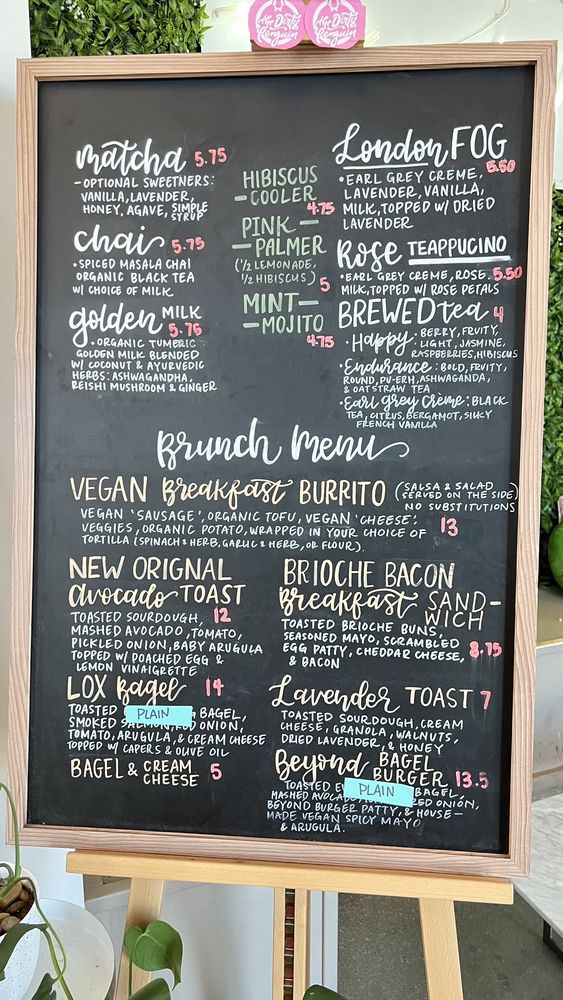 The Dirty Penguin
The Dirty Penguin
matcha 5.75
- OPTIONAL SWEETNERS:
VANILLA, LAVENDER,
HONEY, AGAVE, SIMPLE
SYRUP
chai 5.75
• SPICED MASALA CHAI
ORGANIC BLACK TEA
W/ CHOICE OF MILK
golden MILK
5.75
• ORGANIC TUMERIC
GOLDEN MILK BLENDED
W/ COCONUT & AYURVEDIC
HERBS: ASHWAGANDHA,
REISHI MUSHROOM & GINGER
HIBISCUS
- COOLER
4.75
PINK -
- PALMER
(1/2 LEMONADE,
1/2 HIBISCUS) 5
MINT -
- MOJITO
4.75
London FOG
5.50
• EARL GREY CREME,
LAVENDER, VANILLA,
MILK, TOPPED W/ DRIED
LAVENDER
Rose TEAPPUCINO
• EARL GREY CREME, ROSE, 5.50
MILK, TOPPED W/ ROSE PETALS
BREWED tea 4
• Happy: BERRY, FRUITY,
LIGHT, JASMINE,
RASPBERRIES, HIBISCUS
• Endurance: BOLD, FRUITY,
ROUND, PU-ERH, ASHWAGANDA,
& OAT STRAW TEA
• Earl grey crème: BLACK
TEA, CITRUS, BERGAMOT, SILKY
FRENCH VANILLA
Brunch Menu
VEGAN Breakfast BURRITO (SALSA & SALAD
(SERVED ON THE SIDE)
NO SUBSTITUTIONS
VEGAN 'SAUSAGE', ORGANIC TOFU, VEGAN 'CHEESE',
VEGGIES, ORGANIC POTATO, WRAPPED IN YOUR CHOICE OF 13
TORTILLA (SPINACH & HERB, GARLIC & HERB, OR FLOUR).
NEW ORIGNAL
avocado TOAST
TOASTED SOURDOUGH, 12
MASHED AVOCADO, TOMATO,
PICKLED ONION, BABY ARUGULA
TOPPED W/ POACHED EGG &
LEMON VINAIGRETTE
LOX Bagel 14
TOASTED PLAIN BAGEL,
SMOKED SALMON, RED ONION,
TOMATO, ARUGULA, & CREAM CHEESE
TOPPED W/ CAPERS & OLIVE OIL
BAGEL & CREAM
CHEESE 5
BRIOCHE BACON
Breakfast SAND-
WICH
TOASTED BRIOCHE BUNS,
SEASONED MAYO, SCRAMBLED
EGG PATTY, CHEDDAR CHEESE, 8.75
& BACON
Lavender TOAST 7
TOASTED SOURDOUGH, CREAM
CHEESE, GRANOLA, WALNUTS,
DRIED LAVENDER, & HONEY
Beyond BAGEL
BURGER 13.5
TOASTED PLAIN BAGEL,
MASHED AVOCADO, RED ONION,
BEYOND BURGER PATTY, & HOUSE-
MADE VEGAN SPICY MAYO
& ARUGULA.